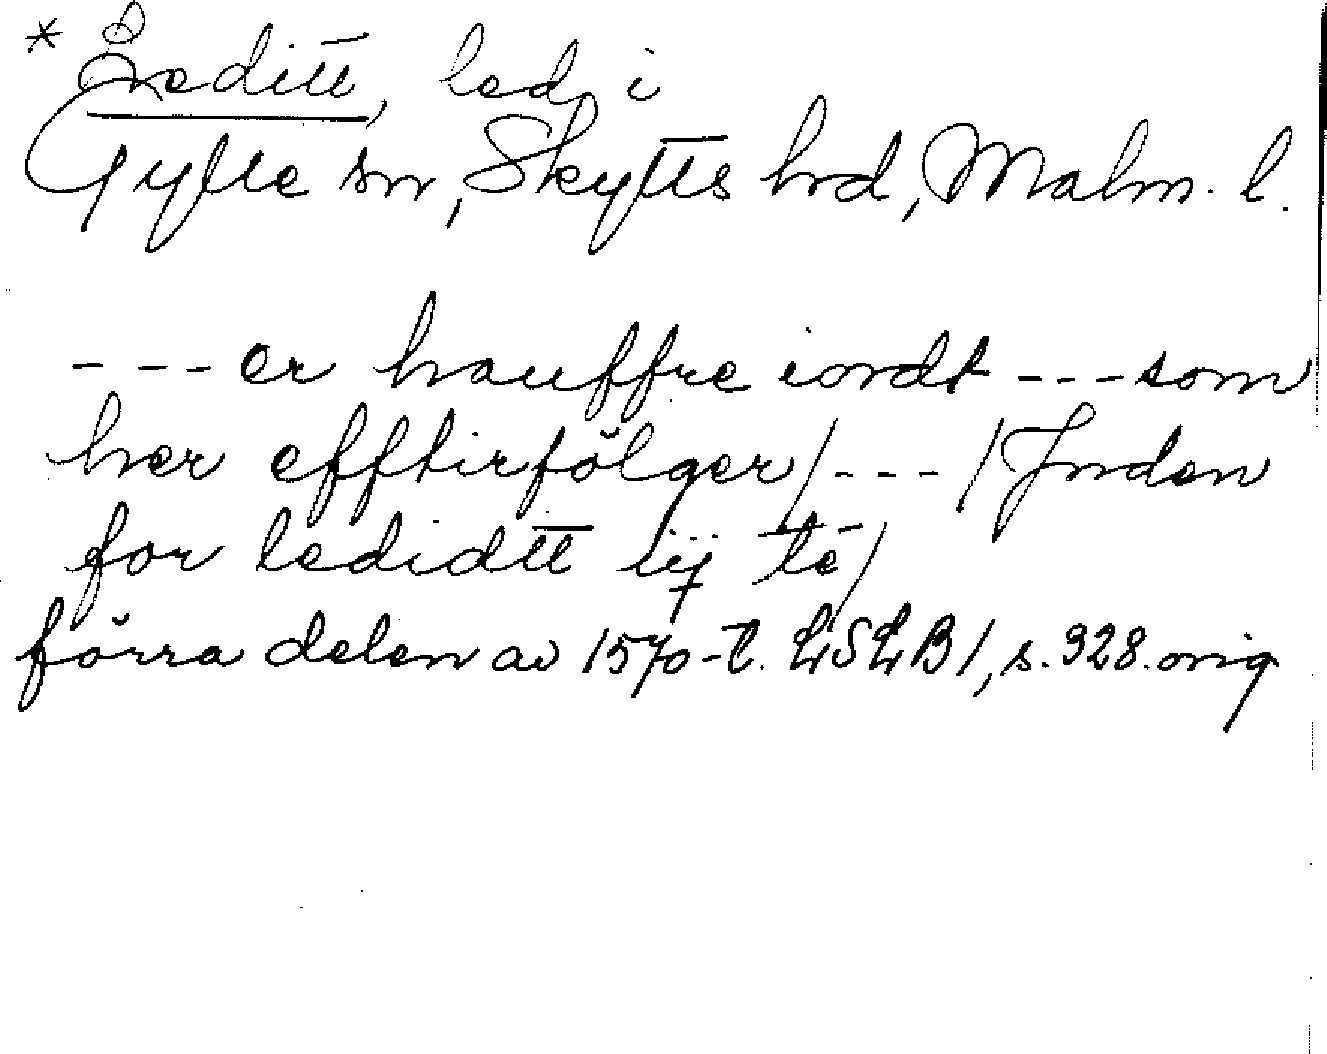 * Åleditt, led, i
Gylle sn, Skytts hrd, Malm. l.
--- er hauffre iordt --- som
her efftirfölger / --- / Jnden
for ledidtt iij te /
förra delen av 1570-t. LSLB 1, s. 328. orig